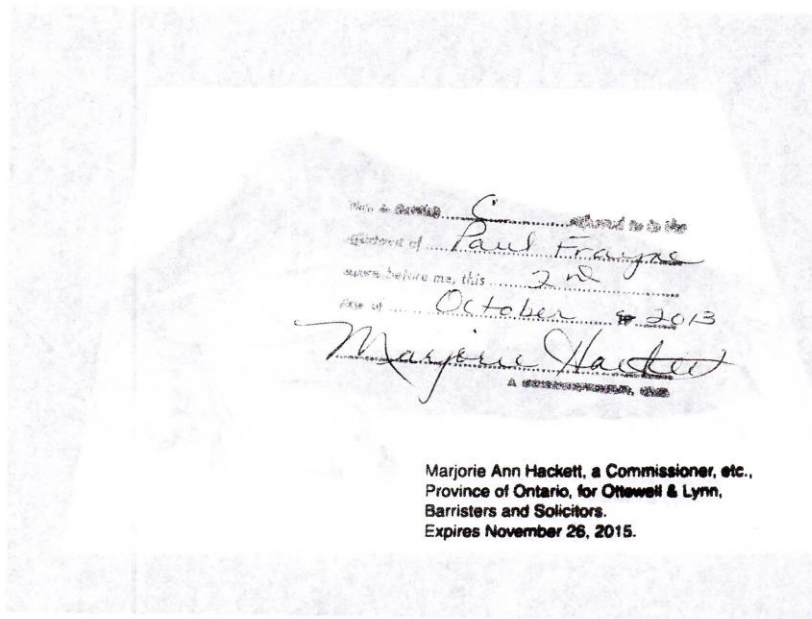 This is Exhibit C referred to in the
affidavit of Paul Frayne
sworn before me, this 2nd
day of October 2013
Marjorie Hackett
A COMMISSIONER, ETC.
Marjorie Ann Hackett, a Commissioner, etc.,
Province of Ontario, for Ottewell & Lynn,
Barristers and Solicitors.
Expires November 26, 2015.